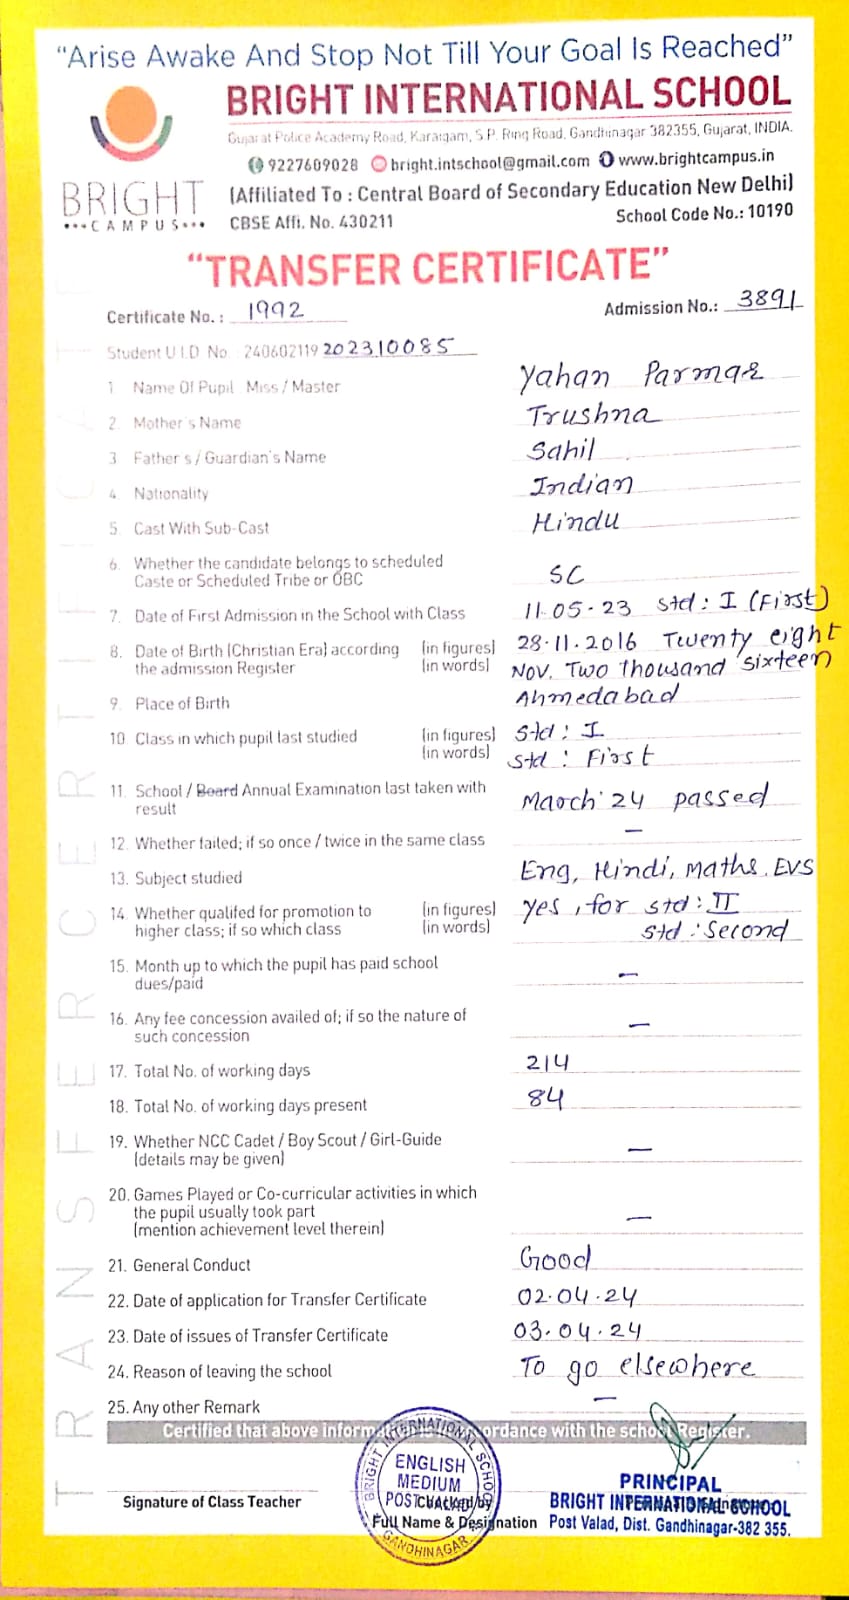 “Arise Awake And Stop Not Till Your Goal Is Reached”
BRIGHT INTERNATIONAL SCHOOL
Gujarat Police Academy Road, Karaigam, S.P. Ring Road, Gandhinagar 382355, Gujarat, INDIA.
9227609028 bright.intschool@gmail.com www.brightcampus.in
BRIGHT
CAMPUS
(Affiliated To : Central Board of Secondary Education New Delhi)
CBSE Affi. No. 430211 School Code No.: 10190
“TRANSFER CERTIFICATE”
Certificate No. : 1992 Admission No.: 3891
Student U.I.D No. 240602119 202310085
1. Name Of Pupil Miss / Master Yahan Parmar
2. Mother's Name Trushna
3. Father s / Guardian's Name Sahil
4. Nationality Indian
5. Cast With Sub-Cast Hindu
6. Whether the candidate belongs to scheduled
Caste or Scheduled Tribe or OBC SC
7. Date of First Admission in the School with Class 11.05.23 Std: I (First)
8. Date of Birth (Christian Era) according (in figures) 28.11.2016 Twenty eight
the admission Register (in words) Nov. Two thousand sixteen
9. Place of Birth Ahmedabad
10. Class in which pupil last studied (in figures) Std: I
(in words) Std : First
11. School / Board Annual Examination last taken with
result March'24 passed
12. Whether failed; if so once / twice in the same class –
13. Subject studied Eng, Hindi, Maths. EVS
14. Whether qualifed for promotion to (in figures) yes, for std: II
higher class; if so which class (in words) std : Second
15. Month up to which the pupil has paid school
dues/paid –
16. Any fee concession availed of; if so the nature of
such concession –
17. Total No. of working days 214
18. Total No. of working days present 84
19. Whether NCC Cadet / Boy Scout / Girl-Guide
(details may be given) –
20. Games Played or Co-curricular activities in which
the pupil usually took part
(mention achievement level therein) –
21. General Conduct Good
22. Date of application for Transfer Certificate 02.04.24
23. Date of issues of Transfer Certificate 03.04.24
24. Reason of leaving the school To go elsewhere
25. Any other Remark –
Certified that above inform ordance with the school Register.
BRIGHT INTERNATIONAL SCHOOL
ENGLISH
MEDIUM
POST VALAD
GANDHINAGAR
Signature of Class Teacher
Checked by
Full Name & Designation
PRINCIPAL
BRIGHT INTERNATIONAL SCHOOL
Post Valad, Dist. Gandhinagar-382 355.
TRANSFER CERTIFICATE